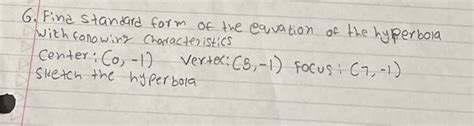 6. Find Standard form of the equation of the hyperbola
with following characteristics
Center: (0, -1) Vertex: (8, -1) Focus: (7, -1)
Sketch the hyperbola